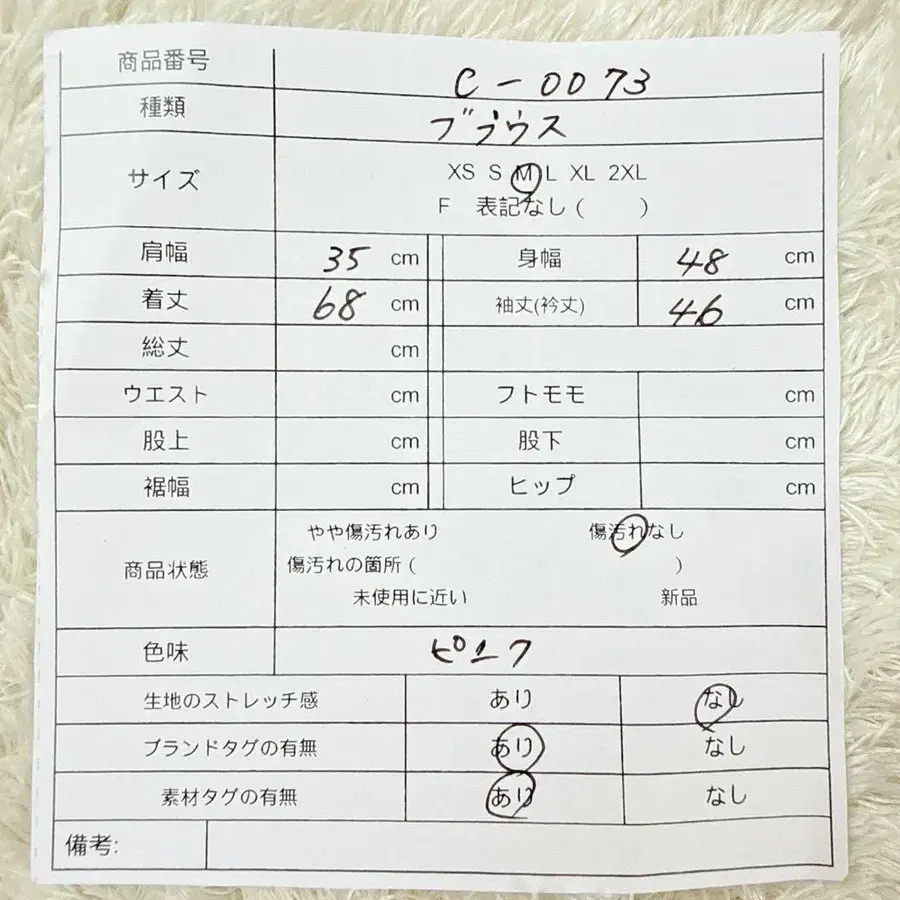 商品番号 C-0073
種類 ブラウス
サイズ XS S M L XL 2XL
F 表記なし( )
肩幅 35 cm 身幅 48 cm
着丈 68 cm 袖丈(衿丈) 46 cm
総丈 cm
ウエスト cm フトモモ cm
股上 cm 股下 cm
裾幅 cm ヒップ cm
やや傷汚れあり 傷汚れなし
商品状態 傷汚れの箇所( )
未使用に近い 新品
色味 ピンク
生地のストレッチ感 あり なし
ブランドタグの有無 あり なし
素材タグの有無 あり なし
備考: